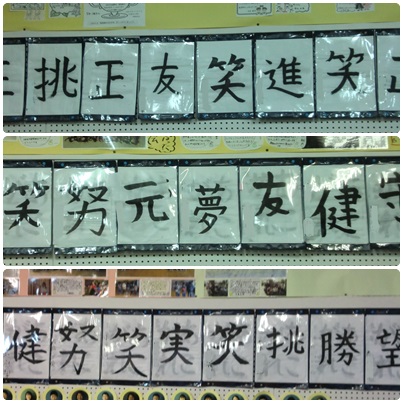 正挑正友笑進笑正
笑努元夢友健守
健努笑実笑挑勝望